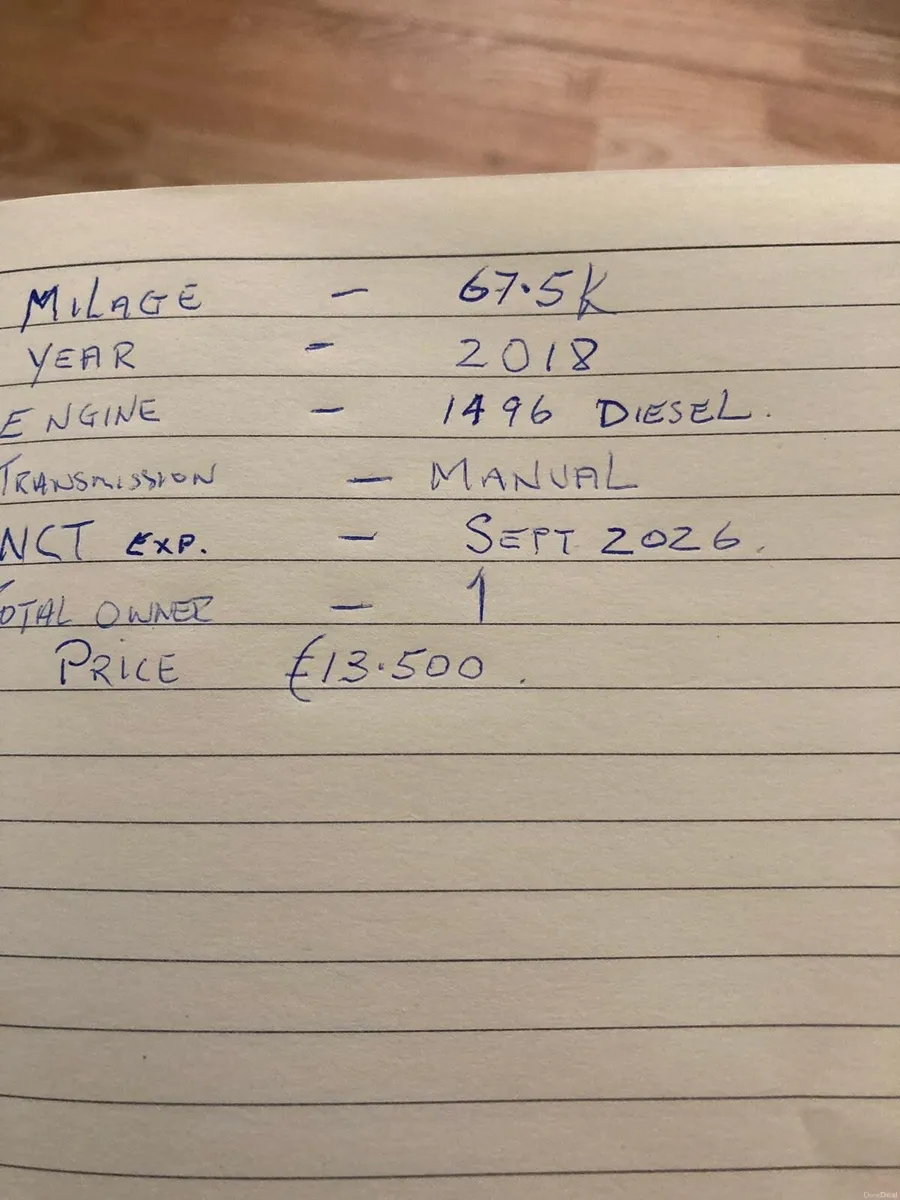 MILAGE - 67.5K
YEAR - 2018
ENGINE - 1496 DIESEL.
TRANSMISSION - MANUAL
NCT EXP. - SEPT 2026.
TOTAL OWNER - 1
PRICE €13.500.
DoneDeal